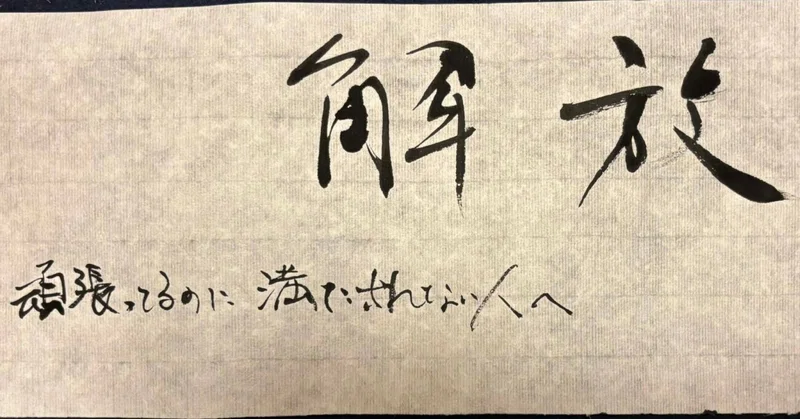 解放
頑張ってるのに 満たされない人へ